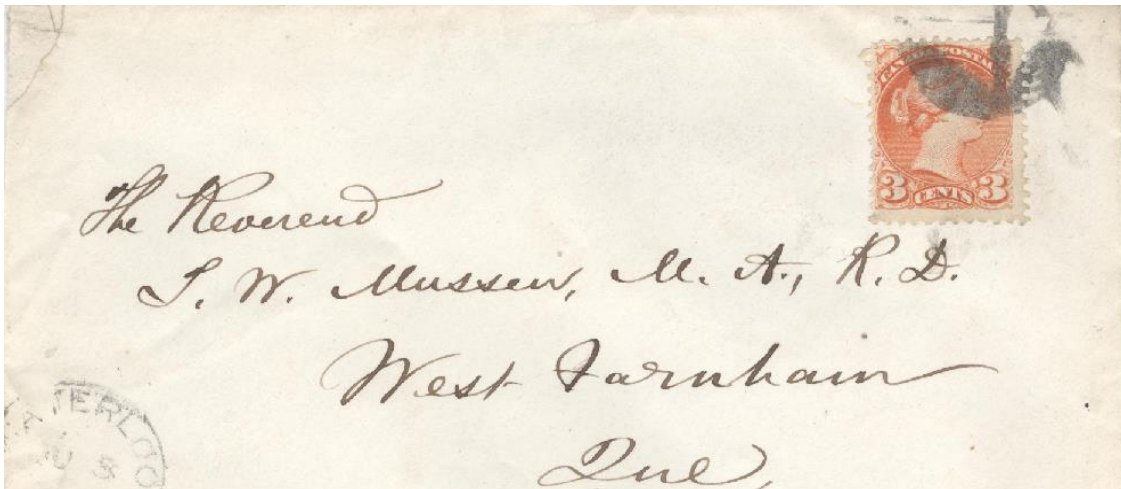 CANADA POSTAGE
3 CENTS 3
The Reverend
S. W. Mussen, M. A., R. D.
West Farnham
Que,
WATERLOO
8